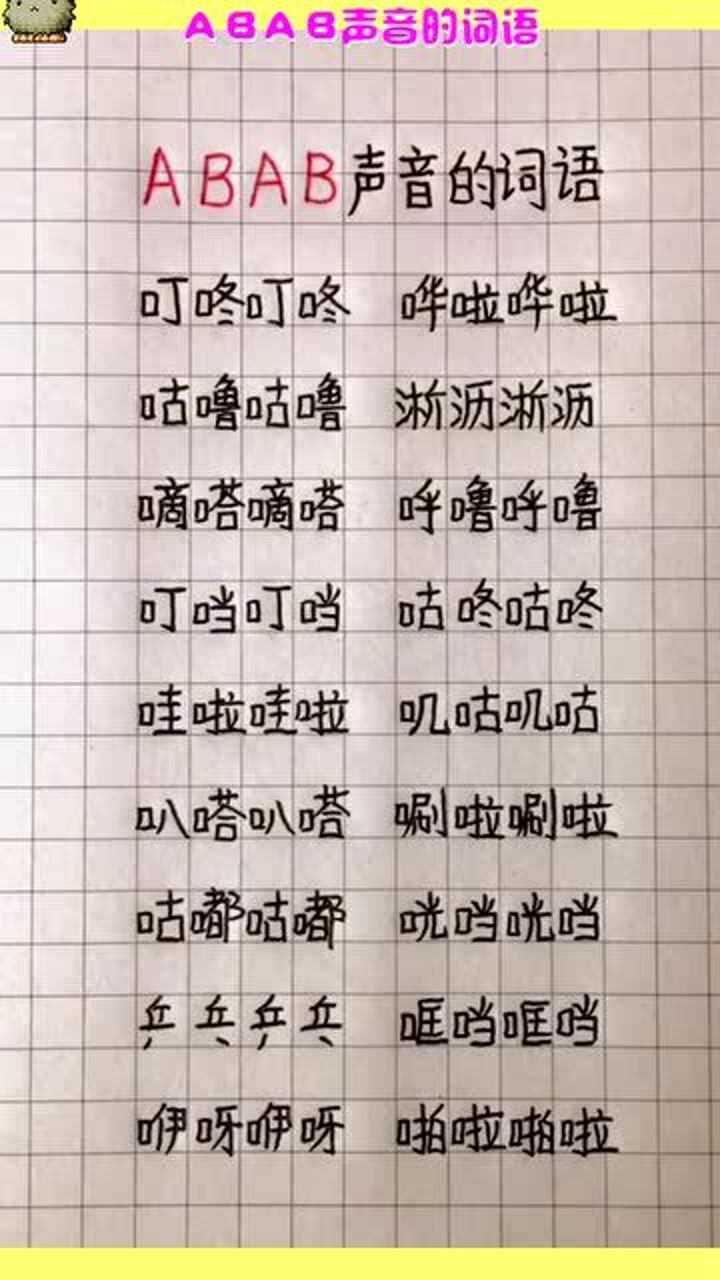 ABAB声音的词语
ABAB声音的词语
叮咚叮咚 哗啦哗啦
咕噜咕噜 淅沥淅沥
嘀嗒嘀嗒 呼噜呼噜
叮当叮当 咕咚咕咚
哇啦哇啦 叽咕叽咕
叭嗒叭嗒 唰啦唰啦
咕嘟咕嘟 咣当咣当
乒乓乒乓 哐当哐当
咿呀咿呀 啪啦啪啦